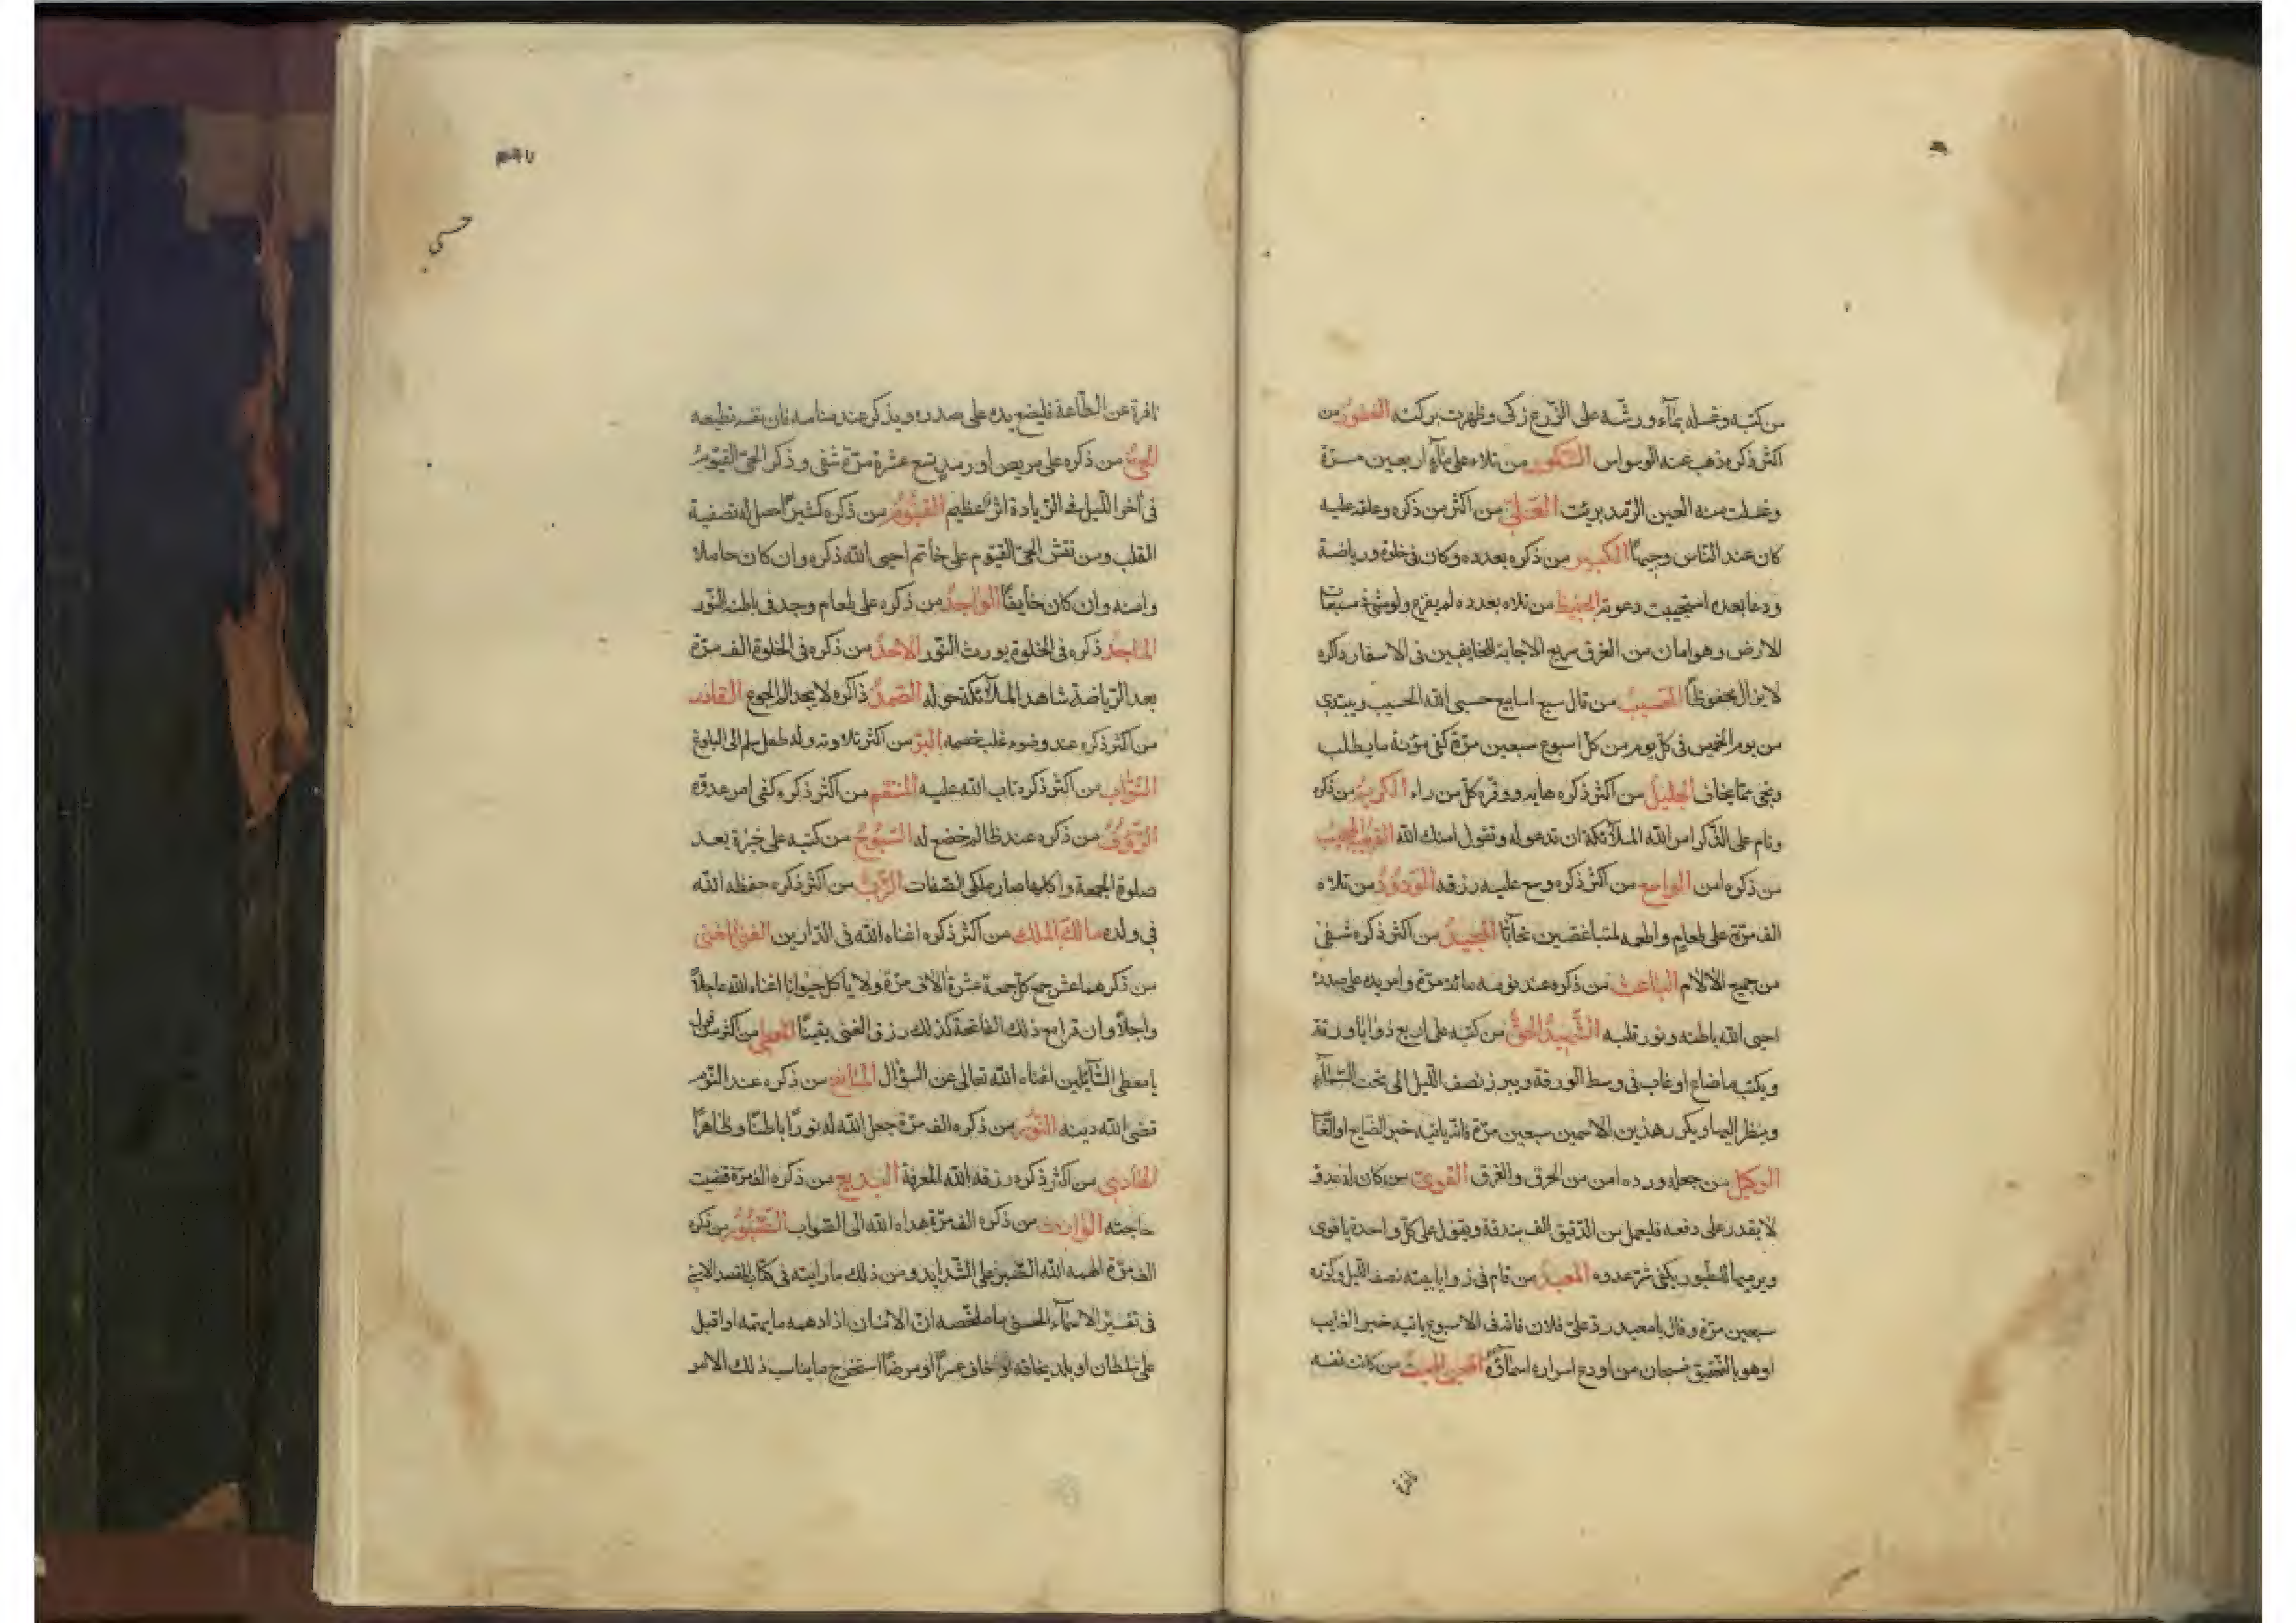 من كتبه وغسله بمآء ورشّه على الزّرع زكى وظهرت بركته الغفور من
اكثر ذكره ذهب عنه الوسواس الشكور من تلاه على مآء اربعين مرّة
وغسلت منه العين الرّمد برئت العَلِيّ من اكثر من ذكره وعلقه عليه
كان عند النّاس وجيهًا الكبير من ذكره بعدده وكان فى خلوة ورياضة
ودعا بعده استجيبت دعوته الحفيظ من تلاه بعدده لم يفزع ولو مشى فى سبعات
الارض وهو امان من الغرق سريع الاجابة للخايفين فى الاسفار ذاكره
لا يزال محفوظًا الحَسيبُ من قال سبع اسابيع حسبى الله الحسيب ويبتدى
من يوم الخميس فى كلّ يوم من كلّ اسبوع سبعين مرّة كفى مؤنة ما يطلب
ونجى ممّا يخاف الجليل من اكثر ذكره هابه ووقّره كلّ من راه الكريم من ذكره
ونام على الذّكر امر الله الملآئكة ان تدعو له وتقول امنك الله القريب المجيب
من ذكره امن الواسع من اكثر ذكره وسع عليه رزقه الوَدُوُدُ من تلاه
الف مرّة على طعام واطعمه لمتباغضين تحآبّا المجيدُ من اكثر ذكره شفى
من جميع الآلام الباعث من ذكره عند نومه مائة مرّة وامر يده على صدره
احيى الله باطنه ونور قلبه الشّهيدُ الحقُّ من كتبه على اربع زوايا ورقة
ويكتب ما ضاع او غاب فى وسط الورقة ويبرز نصف اللّيل الى تحت السّمآء
وينظر اليها ويكرر هذين الاسمين سبعين مرّة فانّه ياتيه خبر الضّايع او الغآئب
الوكيل من جعله ورده امن من الحرق والغرق القوىّ من كان له عدوّ
لا يقدر على دفعه فليعمل من الدّقيق الف بندقة ويقول على كلّ واحدة يا قوى
ويرميها للطّيور يكفى شرّ عدوه المعيدُ من قام فى زوايا بيته نصف اللّيل وكرّره
سبعين مرّة وقال يا معيد ردّ علىّ فلان فانه فى الاسبوع ياتيه خبر الغايب
او هو بالتّحقيق فسبحان من اودع اسراره اسمآؤه المحيى المميت من كانت نفسه
نافرة
حسبى
نافرة عن الطّاعة فليضع يده على صدره ويذكر عند منامه فان نفسه تطيعه
الحىّ من ذكره على مريض او رمدٍ تسع عشرة مرّة شفى وذكر الحىّ القيّوم
فى آخر اللّيل فى الزّيادة اثرٌ عظيم القيّوُمُ من ذكره كثيرًا حصل له تصفية
القلب ومن نقش الحىّ القيّوم على خاتم احيى الله ذكره وان كان خاملا
وامنه وان كان خآيفًا الواجدُ من ذكره على طعام وجد فى باطنه النّور
المَاجِدُ ذكره فى الخلوة يورث النّور الاحدُ من ذكره فى الخلوة الف مرّة
بعد الرّياضة شاهد الملآئكة حوله الصَّمدُ ذاكره لا يجد الم الجوع القادر
من اكثر ذكره عند وضوءه غلب خصمه البَرّ من اكثر تلاوته وله طفل سلم الى البلوغ
التّوّاب من اكثر ذكره تاب الله عليه المنتقم من اكثر ذكره كفى امر عدوّه
الرّؤُفُ من ذكره عند ظالم خضع له السّبُّوُحُ من كتبه على خبزة بعد
صلوة الجمعة واكلها صار ملكى الصّفات الرَّبُّ من اكثر ذكره حفظه الله
فى ولده مالكُ الملك من اكثر ذكره اغناه الله فى الدّارين الغنىّ المغنى
من ذكرهما عشر جمع كلّ جمعة عشرة آلاف مرّة ولا ياكل حيوانا اغناه الله عاجلاً
واجلاً وان قرا مع ذلك الفاتحة كذلك رزق الغنى يقينًا المعطى من اكثر من قول
يا معطى السّآئلين اغناه الله تعالى عن السؤال المَانِع من ذكره عند النّوم
قضى الله دينه النّوُر من ذكره الف مرّة جعل الله له نورًا باطنًا وظاهرًا
الهَادِى من اكثر ذكره رزقه الله المعرفة البديع من ذكره الف مرّة قضيت
حاجته الوارث من ذكره الف مرّة هداه الله الى الصّواب الصّبُوُر من ذكره
الف مرّة الهمه الله الصّبر على الشّدايد ومن ذلك ما رايته فى كتاب المقصد الاسنى
فى تفسير الاسمآء الحسنى ما ملخّصه انّ الانسان اذا دهمه ما يهمّه او اقبل
على سلطان او بلد يخافه او خاف عسرًا او مرضًا استخرج ما يناسب ذلك الامر